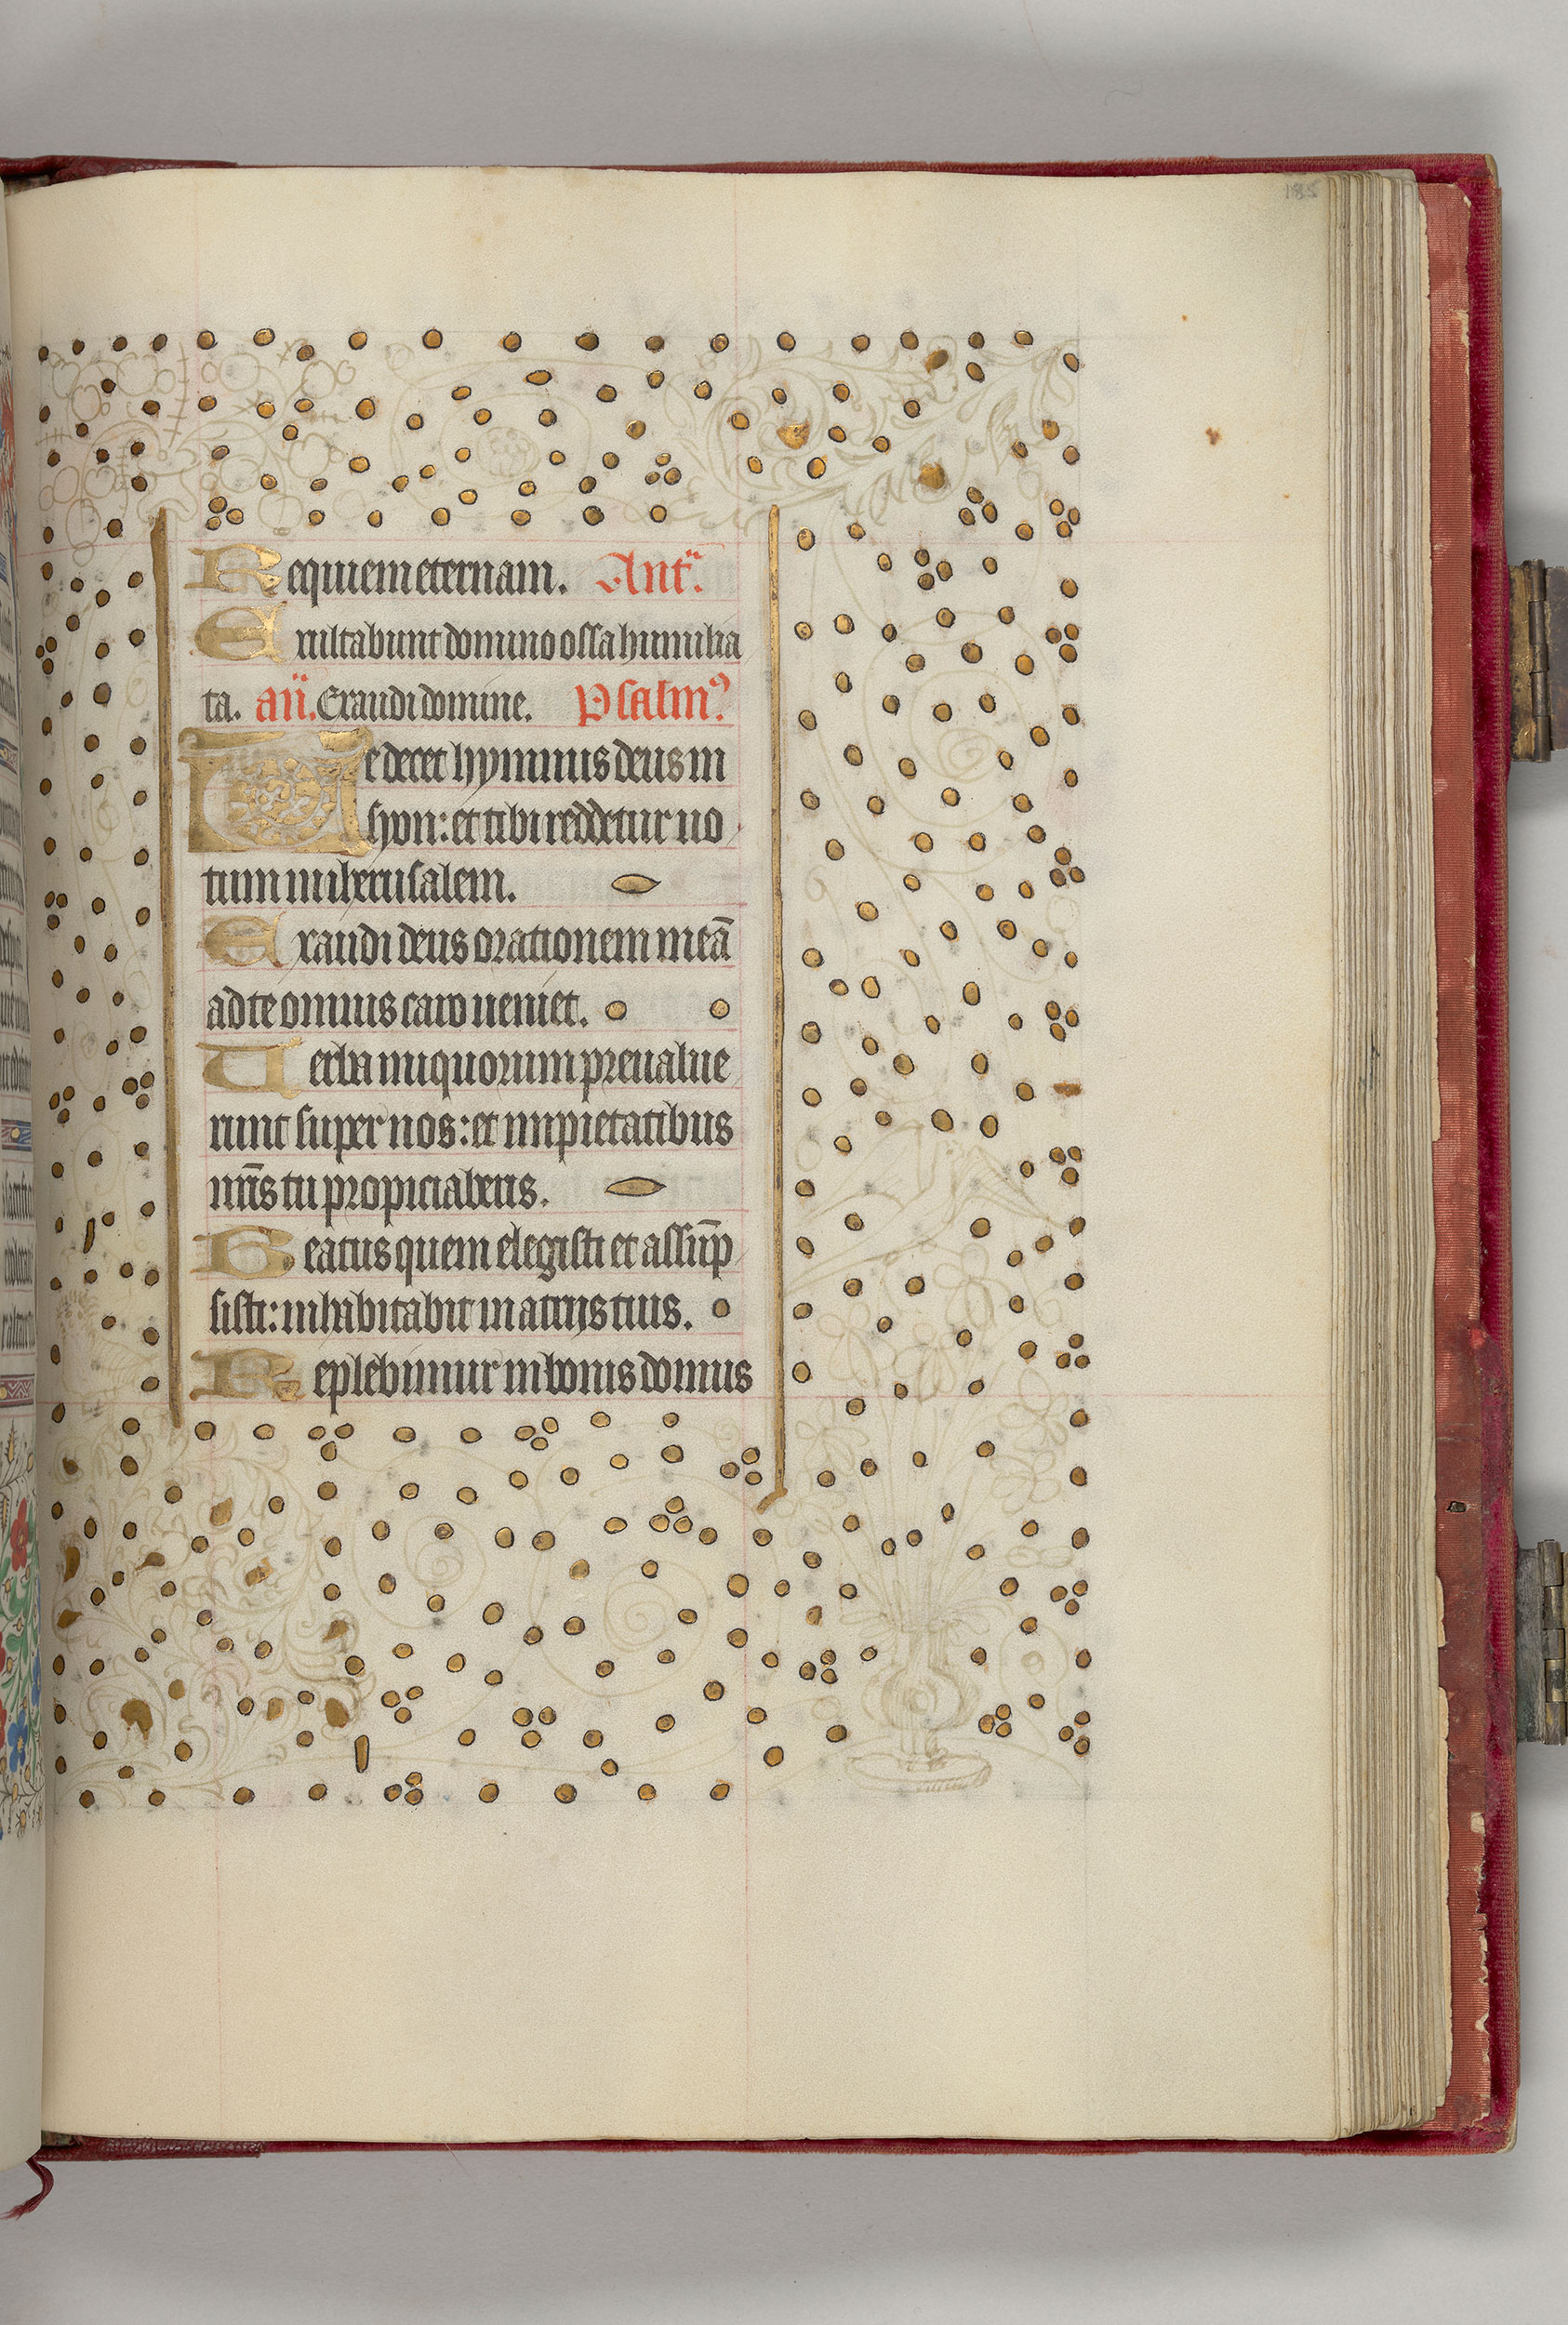 185
Requiem eternam. Ant.
Exultabunt domino ossa humilia
ta. añ. Exaudi domine. Psalmꝰ.
Te decet hymnus deus in
syon: et tibi reddetur uo
tum in iherusalem.
Exaudi deus orationem meā
ad te omnis caro ueniet.
Uerba iniquorum preualue
runt super nos: et impietatibus
nr̄is tu propiciaberis.
Beatus quem elegisti et assūp
sisti: inhabitabit in atrijs tuis.
Replebimur in bonis domus